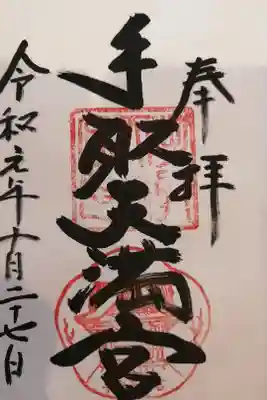 奉拝
手取天満宮
令和元年十月二十七日